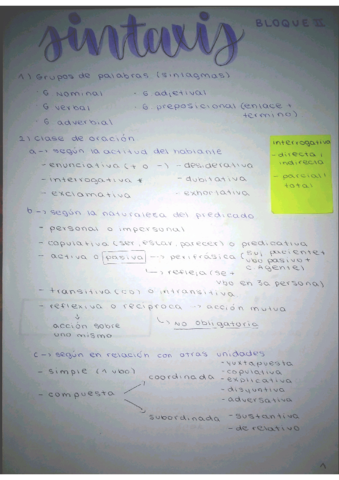 sintaxis
BLOQUE II
1) Grupos de palabras (sintagmas)
G nominal · G adjetival
G verbal · G preposicional (enlace + término)
· G adverbial
2) Clase de oración
a → según la actitud del hablante
- enunciativa (+ o -) - desiderativa
- interrogativa * - dubitativa
- exclamativa - exhortativa
interrogativa
- directa / indirecta
- parcial / total
b → según la naturaleza del predicado
- personal o impersonal
- copulativa (ser, estar, parecer) o predicativa
- activa o pasiva → perifrástica (suj paciente + vbo pasivo + c. Agente)
↳ refleja (se + vbo en 3a persona)
- transitiva (CD) o intransitiva
- reflexiva o recíproca → acción mutua
↓
acción sobre uno mismo
↳ No obligatorio
c → según en relación con otras unidades
- simple (1 vbo)
- compuesta
coordinada
- yuxtapuesta
- copulativa
- explicativa
- disyuntiva
- adversativa
subordinada
- sustantiva
- de relativo
1